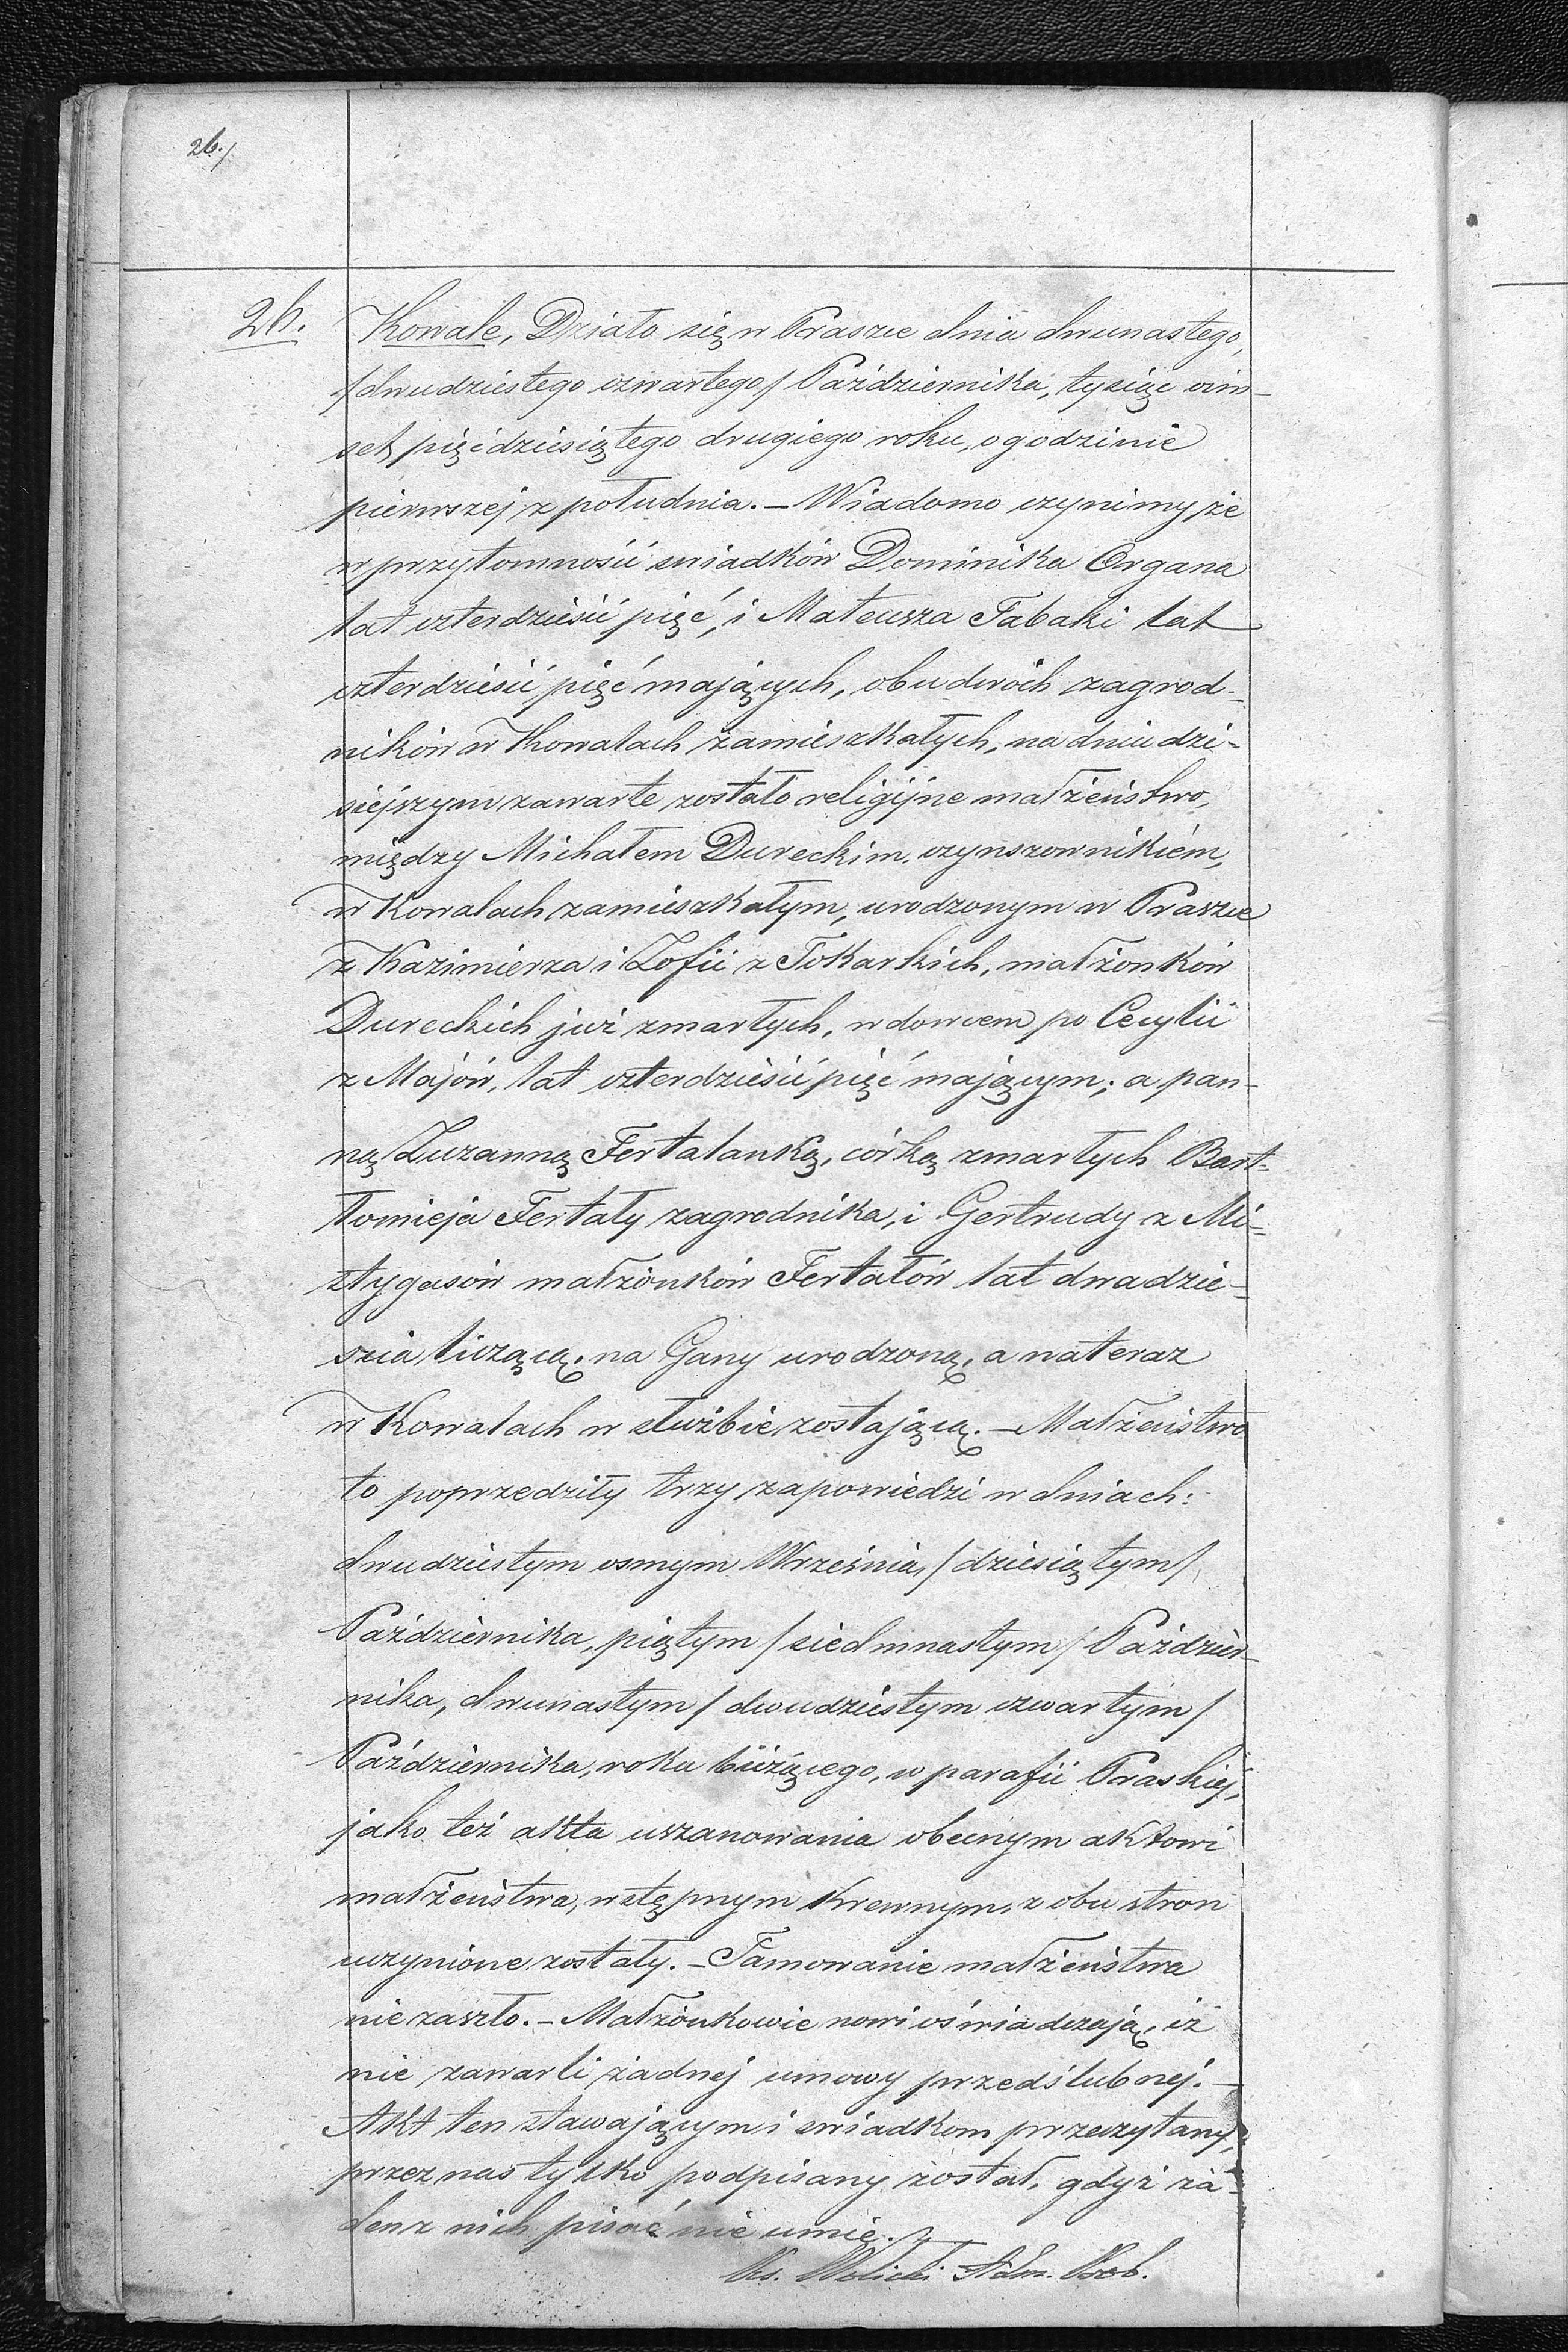 26./
26. Kowale, Działo się w Praszce dnia dwunastego,
/dwudziestego czwartego/ Października, tysiąc ośm-
set pięćdziesiątego drugiego roku, o godzinie
pierwszej z południa. – Wiadomo czynimy, że
w przytomności świadków Dominika Organa
lat czterdzieści pięć, i Mateusza Tabaki lat
czterdzieści pięć mających, obudwóch zagrod-
ników w Kowalach zamieszkałych, na dniu dzi-
siejszym zawarte zostało religijne małżeństwo,
między Michałem Dureckim, czynszownikiem,
w Kowalach zamieszkałym, urodzonym w Praszce
z Kazimierza i Zofii z Tokarskich, małżonków
Dureckich już zmarłych, wdowcem po Cecylii
z Majów, lat czterdzieści pięć mającym; a pan-
ną Zuzanną Fertalanką, córką zmarłych Bart-
łomieja Fertały zagrodnika, i Gertrudy z Mi-
sztygasów małżonków Fertałów lat dwadzie-
ścia liczącą, na Gany urodzoną, a nateraz
w Kowalach w służbie zostającą. – Małżeństwo
to poprzedziły trzy zapowiedzi w dniach:
dwudziestym osmym Września, /dziesiątym/
Października, piątym /siedmnastym/ Paździer-
nika, dwunastym /dwudziestym czwartym/
Października, roku bieżącego, w parafii Praskiej,
jako też akta uszanowania obecnym aktowi
małżeństwa, wstępnym krewnym, z obu stron
uczynione zostały. – Tamowanie małżeństwa
nie zaszło. – Małżonkowie nowi oświadczają, iż
nie zawarli żadnej umowy przedślubnej. –
Akt ten stawającym i świadkom przeczytany,
przez nas tylko podpisany został, gdyż ża-
den z nich pisać nie umie.
Ks. Wolicki Adm. Prob.